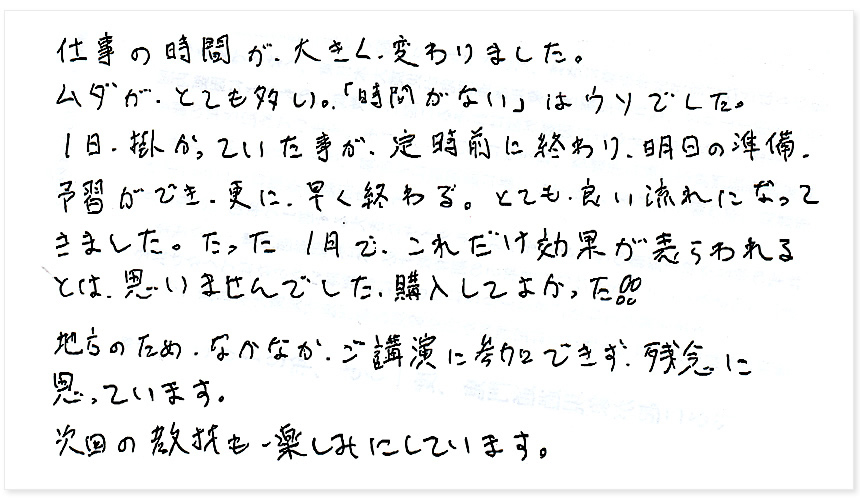 仕事の時間が、大きく、変わりました。
ムダが、とても多い。「時間がない」はウソでした。
1日、掛かっていた事が、定時前に終わり、明日の準備、
予習ができ、更に、早く終わる。とても、良い流れになって
きました。たった 1月で、これだけ効果が表らわれる
とは、思いませんでした、購入してよかった!!
地方のため、なかなか、ご講演に参加できず、残念に
思っています。
次回の教材も、楽しみにしています。